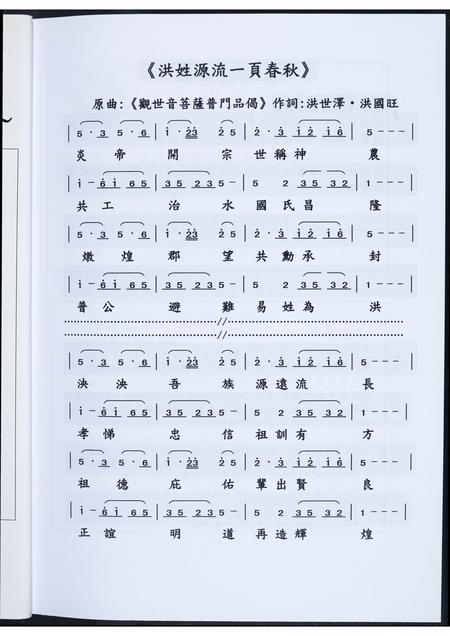 《洪姓源流一頁春秋》
原曲:《觀世音菩薩普門品偈》作詞:洪世澤·洪國旺
| 5 · 3 5 · 6 | i · 2̇3̇ 2̇ 5 | 2̇ · 3̇ i 2̇ i 6 | 5 - - - |
炎 帝 開 宗 世 稱 神 農
| i - 6 i 6 5 | 3 5 2 3 5 - | 5 2 3 5 3 2 | 1 - - - |
共 工 治 水 國 氏 昌 隆
| 5 · 3 5 · 6 | i · 2̇3̇ 2̇ 5 | 2̇ · 3̇ i 2̇ i 6 | 5 - - - |
燉 煌 郡 望 共 勳 承 封
| i - 6 i 6 5 | 3 5 2 3 5 - | 5 2 3 5 3 2 | 1 - - - |
普 公 避 難 易 姓 為 洪
//
//
| 5 · 3 5 · 6 | i · 2̇3̇ 2̇ 5 | 2̇ · 3̇ i 2̇ i 6 | 5 - - - |
泱 泱 吾 族 源 遠 流 長
| i - 6 i 6 5 | 3 5 2 3 5 - | 5 2 3 5 3 2 | 1 - - - |
孝 悌 忠 信 祖 訓 有 方
| 5 · 3 5 · 6 | i · 2̇3̇ 2̇ 5 | 2̇ · 3̇ i 2̇ i 6 | 5 - - - |
祖 德 庇 佑 輩 出 賢 良
| i - 6 i 6 5 | 3 5 2 3 5 - | 5 2 3 5 3 2 | 1 - - - |
正 誼 明 道 再 造 輝 煌